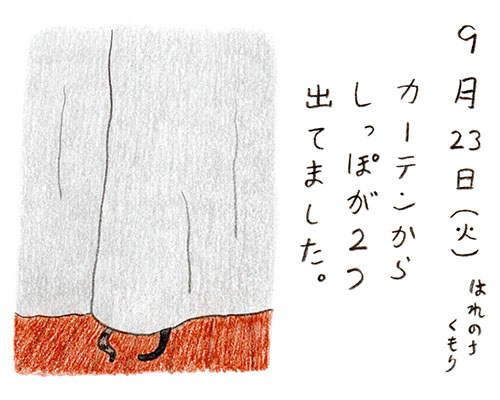 9月23日(火)
はれのちくもり
カーテンから
しっぽが2つ
出てました。